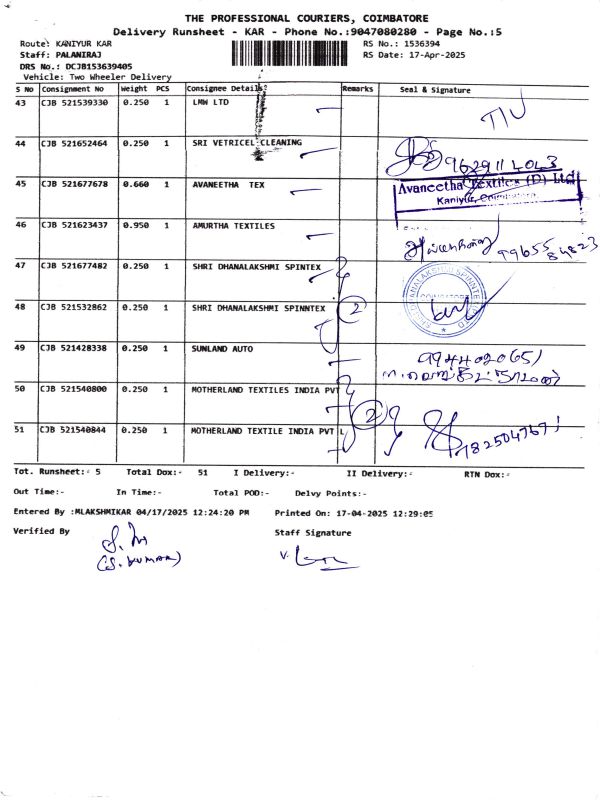 THE PROFESSIONAL COURIERS, COIMBATORE
Delivery Runsheet - KAR - Phone No.:9047080280 - Page No.:5
Route: KANIYUR KAR RS No.: 1536394
Staff: PALANIRAJ RS Date: 17-Apr-2025
DRS No.: DCJB153639405
Vehicle: Two Wheeler Delivery
S No Consignment No Weight PCS Consignee Details Remarks Seal & Signature
43 CJB 521539330 0.250 1 LMW LTD
44 CJB 521652464 0.250 1 SRI VETRICEL CLEANING
45 CJB 521677678 0.660 1 AVANEETHA TEX Avaneetha Textiles (P) Ltd
Kaniyur, Coimbatore
46 CJB 521623437 0.950 1 AMURTHA TEXTILES
47 CJB 521677482 0.250 1 SHRI DHANALAKSHMI SPINTEX
48 CJB 521532862 0.250 1 SHRI DHANALAKSHMI SPINNTEX 2 COIMBATORE
49 CJB 521428338 0.250 1 SUNLAND AUTO
50 CJB 521540800 0.250 1 MOTHERLAND TEXTILES INDIA PVT
2
51 CJB 521540844 0.250 1 MOTHERLAND TEXTILE INDIA PVT L
Tot. Runsheet:- 5 Total Dox:- 51 I Delivery:- II Delivery:- RTN Dox:-
Out Time:- In Time:- Total POD:- Delvy Points:-
Entered By :MLAKSHMIKAR 04/17/2025 12:24:20 PM Printed On: 17-04-2025 12:29:05
Verified By Staff Signature
(S. KUMAR)